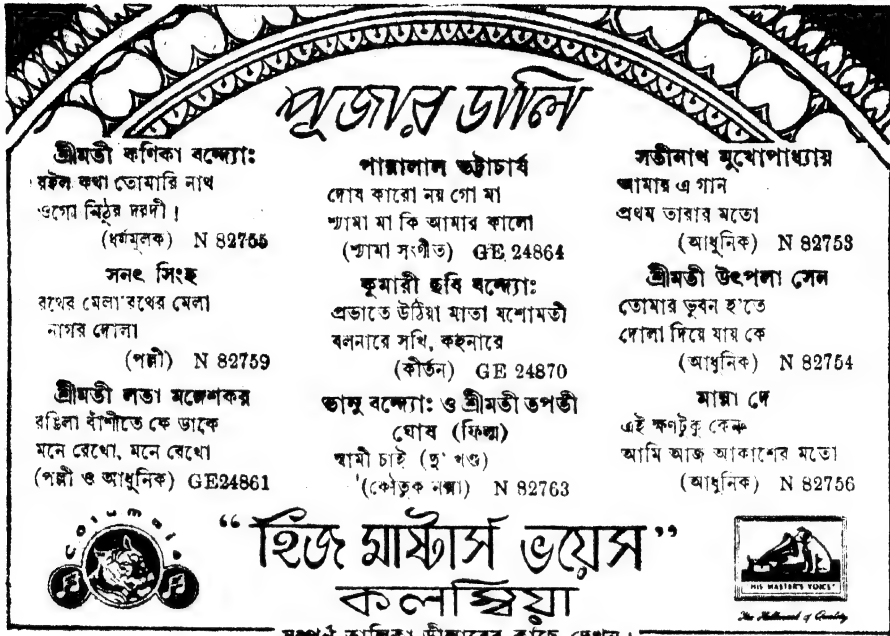 পূজার ডালি
শ্রীমতী কণিকা বন্দ্যোঃ
রইল কথা তোমারি নাথ
ওগো নিঠুর দরদী !
(ধর্মমূলক) N 82755
সনৎ সিংহ
রথের মেলা রথের মেলা
নাগর দোলা
(পল্লী) N 82759
শ্রীমতী লতা মঙ্গেশকর
রঙিলা বাঁশীতে কে ডাকে
মনে রেখো, মনে রেখো
(পল্লী ও আধুনিক) GE24861
পান্নালাল ভট্টাচার্য
দোষ কারো নয় গো মা
শ্যামা মা কি আমার কালো
(শ্যামা সংগীত) GE 24864
কুমারী ছবি বন্দ্যোঃ
প্রভাতে উঠিয়া মাতা যশোমতী
বলনারে সখি, কহনারে
(কীর্তন) GE 24870
ভানু বন্দ্যোঃ ও শ্রীমতী তপতী
ঘোষ (ফিল্ম)
স্বামী চাই (দু' খণ্ড)
(কৌতুক নক্সা) N 82763
সতীনাথ মুখোপাধ্যায়
আমার এ গান
প্রথম তারার মতো
(আধুনিক) N 82753
শ্রীমতী উৎপলা সেন
তোমার ভুবন হ'তে
দোলা দিয়ে যায় কে
(আধুনিক) N 82754
মান্না দে
এই ক্ষণটুকু কেন
আমি আজ আকাশের মতো
(আধুনিক) N 82756
Columbia
"হিজ মাষ্টার্স ভয়েস"
কলম্বিয়া
HIS MASTER'S VOICE
The Hallmark of Quality
সম্পূর্ণ তালিকা ডীলারের কাছে দেখুন।